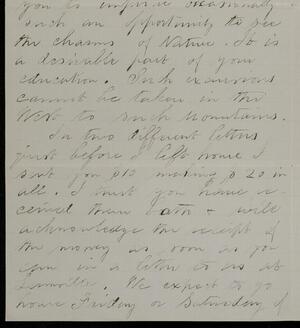 you to improve occasionally
such an opportunity to see
the chasms of Nature. It is
a desirable part of your
education. Such excursions
cannot be taken in the
West to such Mountains.
In two different letters
just before I left home I
sent you $10 making $20 in
all. I trust you have re-
ceived them both & will
acknowledge the receipt of
the money as soon as you
can in a letter to us at
We expect to go
home Friday or Saturday of